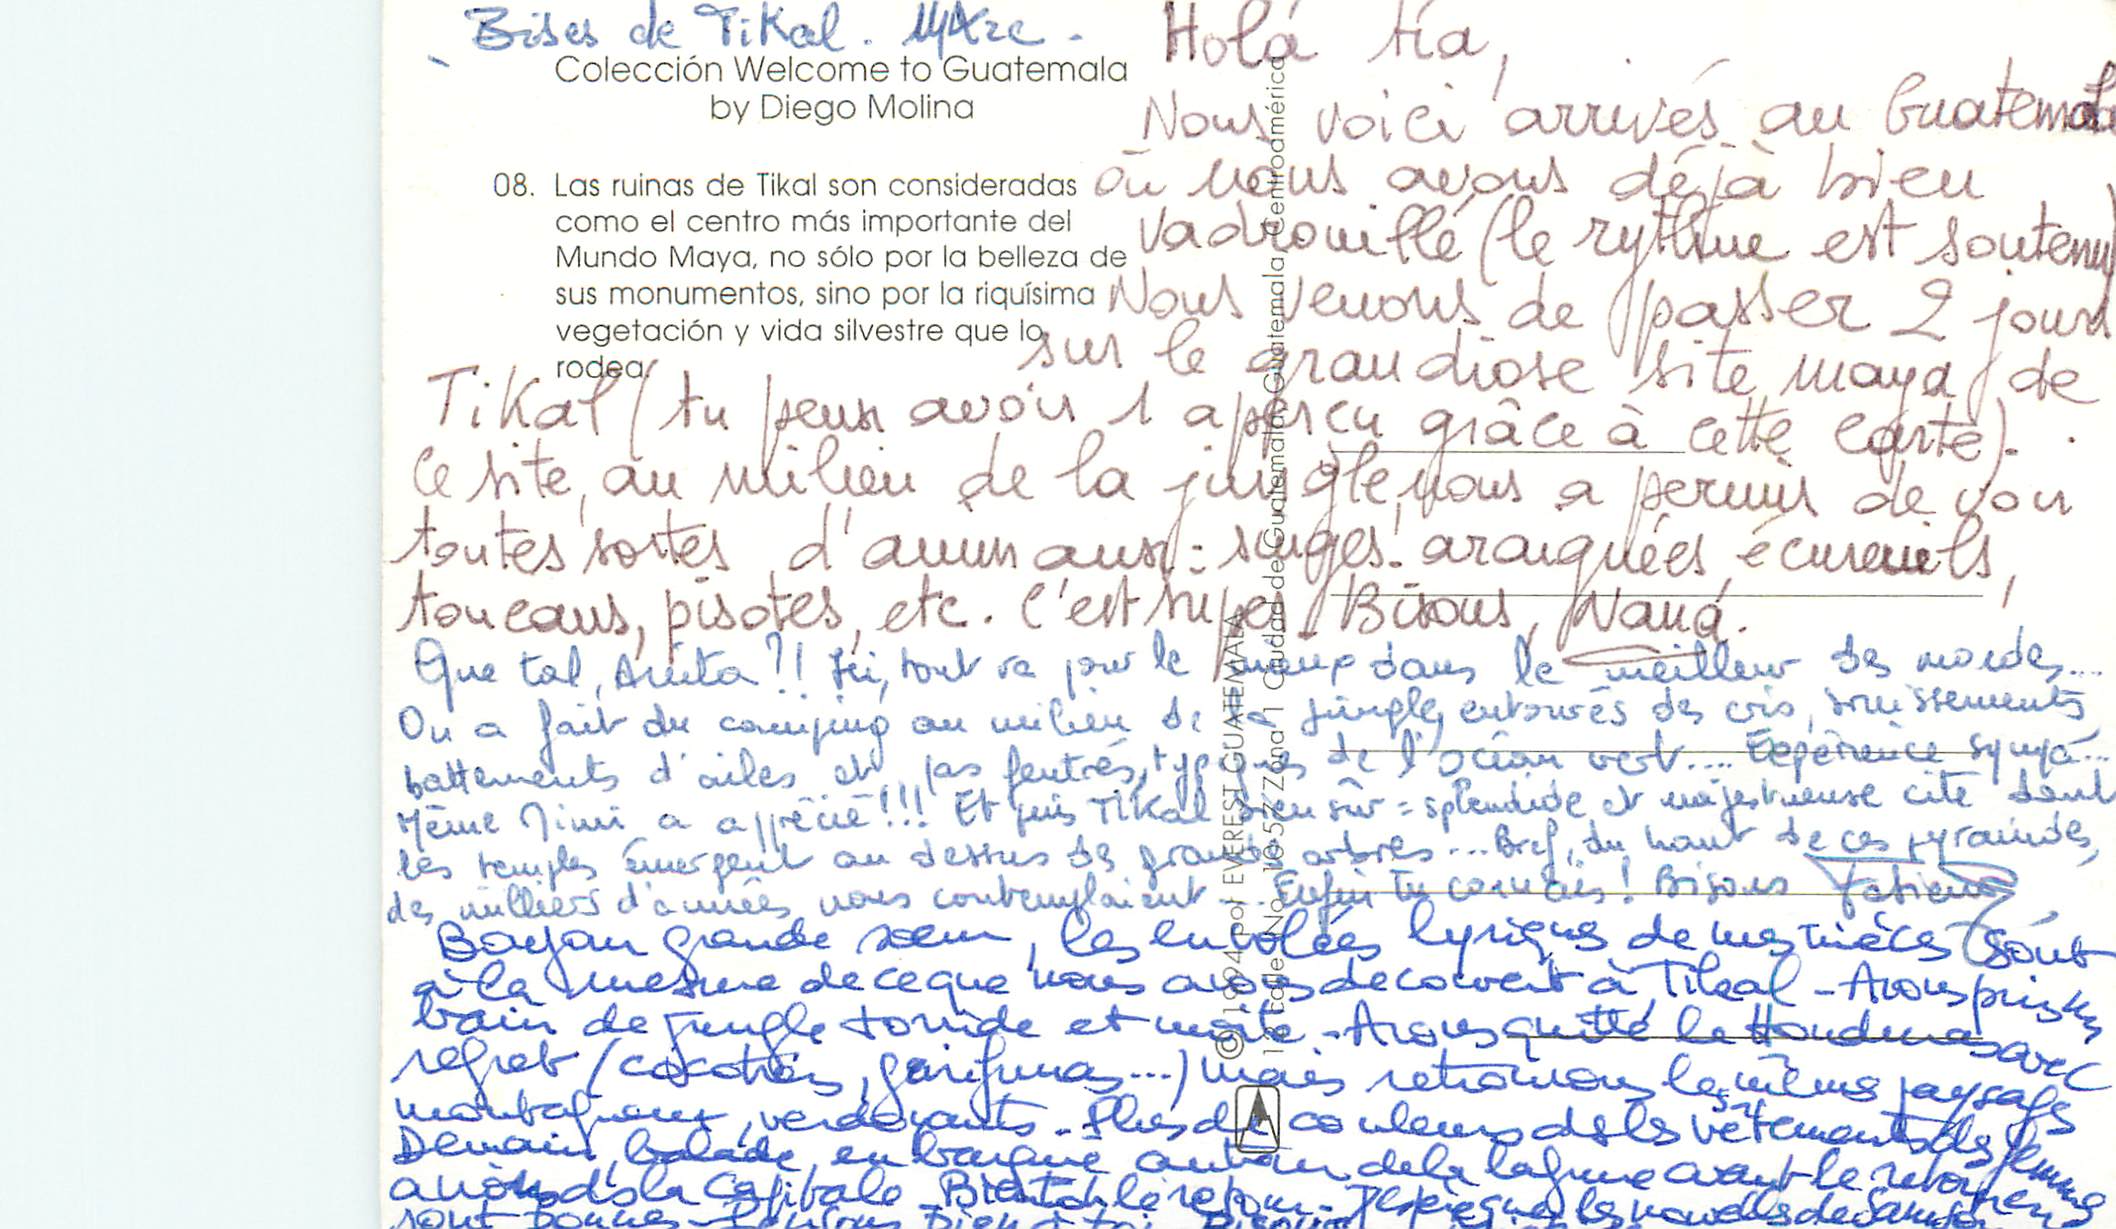 Bises de Tikal. Marc.
Colección Welcome to Guatemala
by Diego Molina
08. Las ruinas de Tikal son consideradas
como el centro más importante del
Mundo Maya, no sólo por la belleza de
sus monumentos, sino por la riquísima
vegetación y vida silvestre que lo
rodea.
Holá tía,
Nous voici arrivés au Guatemala
où nous avons déjà bien
vadrouillé (le rythme est soutenu)
Nous venons de passer 2 jours
sur le grandiose site maya de
Tikal (tu peux avoir 1 aperçu grâce à cette carte).
Ce site, au milieu de la jungle, nous a permis de voir
toutes sortes d'animaux : singes-araignées, écureuils,
toucans, pisotes, etc. C'est super. Bisous, Naná.
Que tal, Anita ?!! Ici, tout va pour le mieux dans le meilleur des mondes...
On a fait du camping au milieu de la jungle, entourés des cris, bruissements,
battements d'ailes et pas feutrés, typiques de l'océan vert.... Expérience sympa...
Même Mimi a apprécié !!! Et puis Tikal bien sûr : splendide et majestueuse cité dont
les temples émergent au dessus des grands arbres... Bref, du haut de ces pyramides,
des milliers d'années nous contemplaient... Enfin tu connais ! Bisous
Bayan grande soeur, les envolées lyriques de mes nièces sont
à la mesure de ce que nous avons découvert à Tikal - Avons pris un
bain de jungle torride et moite - Avons quitté le Honduras avec
regret (cocotiers, garifunas...) mais retrouvons les mêmes paysages
montagneux, verdoyants - Plus de couleurs ds les vêtements des femmes
Demain, balade en barque autour de la lagune avant le retour en
avion ds la Capitale - Bientôt le retour - J'espère que les nouvelles de
sont bonnes - Pensons bien à toi.
© 1994 pol EVEREST GUATEMALA
13 calle No. 16-57 Zona 1 Ciudad de Guatemala, Guatemala, Centroamérica